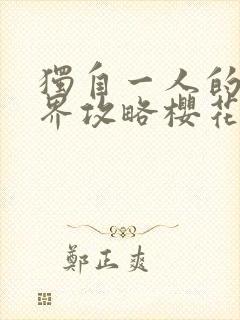 獨自一人的
界攻略櫻花
鄭正爽